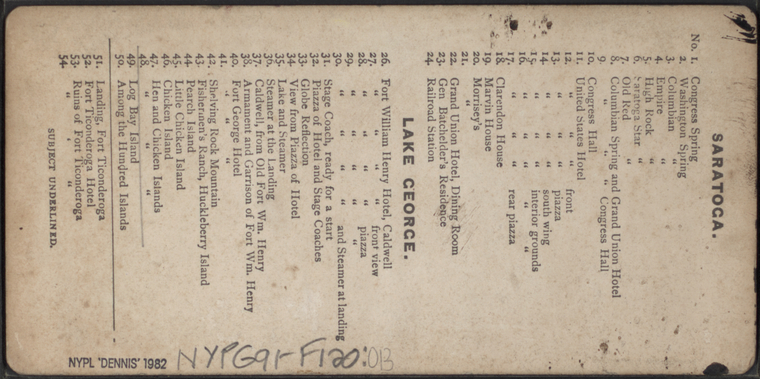 SARATOGA.
No. 1. Congress Spring
2. Washington Spring
3. Columbian "
4. Empire "
5. High Rock "
6. Saratoga Star "
7. Old Red "
8. Columbian Spring and Grand Union Hotel
9. " " Congress Hall
10. Congress Hall
11. United States Hotel
12. " " " front
13. " " " piazza
14. " " " south wing
15. " " " interior grounds
16. " " " " "
17. " " " rear piazza
18. Clarendon House
19. Marvin House
20. Morrisey's
21. "
22. Grand Union Hotel, Dining Room
23. Gen. Batchelder's Residence
24. Railroad Station
LAKE GEORGE.
26. Fort William Henry Hotel, Caldwell
27. " " " " front view
28. " " " " piazza
29. " " " " "
30. " " " " and Steamer at landing
31. Stage Coach, ready for a start
32. Piazza of Hotel and Stage Coaches
33. Globe Reflection
34. View from Piazza of Hotel
35. Lake and Steamer
36. Steamer at the Landing
37. Caldwell, from Old Fort Wm. Henry
38. Armament and Garrison of Fort Wm. Henry
40. Fort George Hotel
41. " "
42. Shelving Rock Mountain
43. Fishermen's Ranch, Huckleberry Island
44. Pearch Island
45. Little Chicken Island
46. Chicken Island
47. Hen and Chicken Islands
48. " " "
49. Log Bay Island
50. Among the Hundred Islands
51. Landing, Fort Ticonderoga
52. Fort Ticonderoga Hotel
53. Ruins of Fort Ticonderoga
54. " "
SUBJECT UNDERLINED.
NYPL 'DENNIS' 1982
NYPG91-F120:013